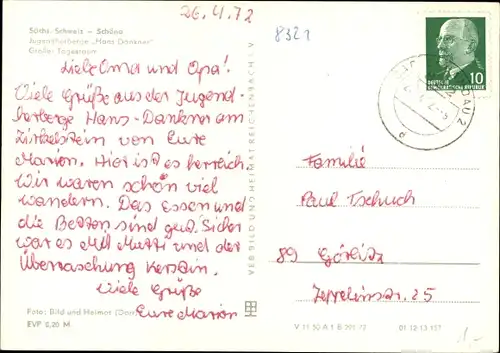 26.4.72
8321
Sächs. Schweiz – Schöna
Jugendherberge „Hans Dankner"
Großer Tagesraum
Liebe Oma und Opa!
Viele Grüße aus der Jugend-
herberge Hans-Dankner am
Zirkelstein von Eure
Marion. Hier ist es herrlich.
Wir waren schon viel
wandern. Das Essen und
die Betten sind gut. Sicher
war es mit Mutti und der
Überraschung Kerstin.
Viele Grüße
Eure Marion
Foto: Bild und Heimat
EVP 0,20 M
VEB BILD UND HEIMAT REICHENBACH I. V.
DEUTSCHE
DEMOKRATISCHE REPUBLIK
10
DAU 2
Familie
Paul Tschuch
89 Görlitz
Zeppelinstr. 25
V 11 50 A 1 B 201/72
01 12 13 137
1.-